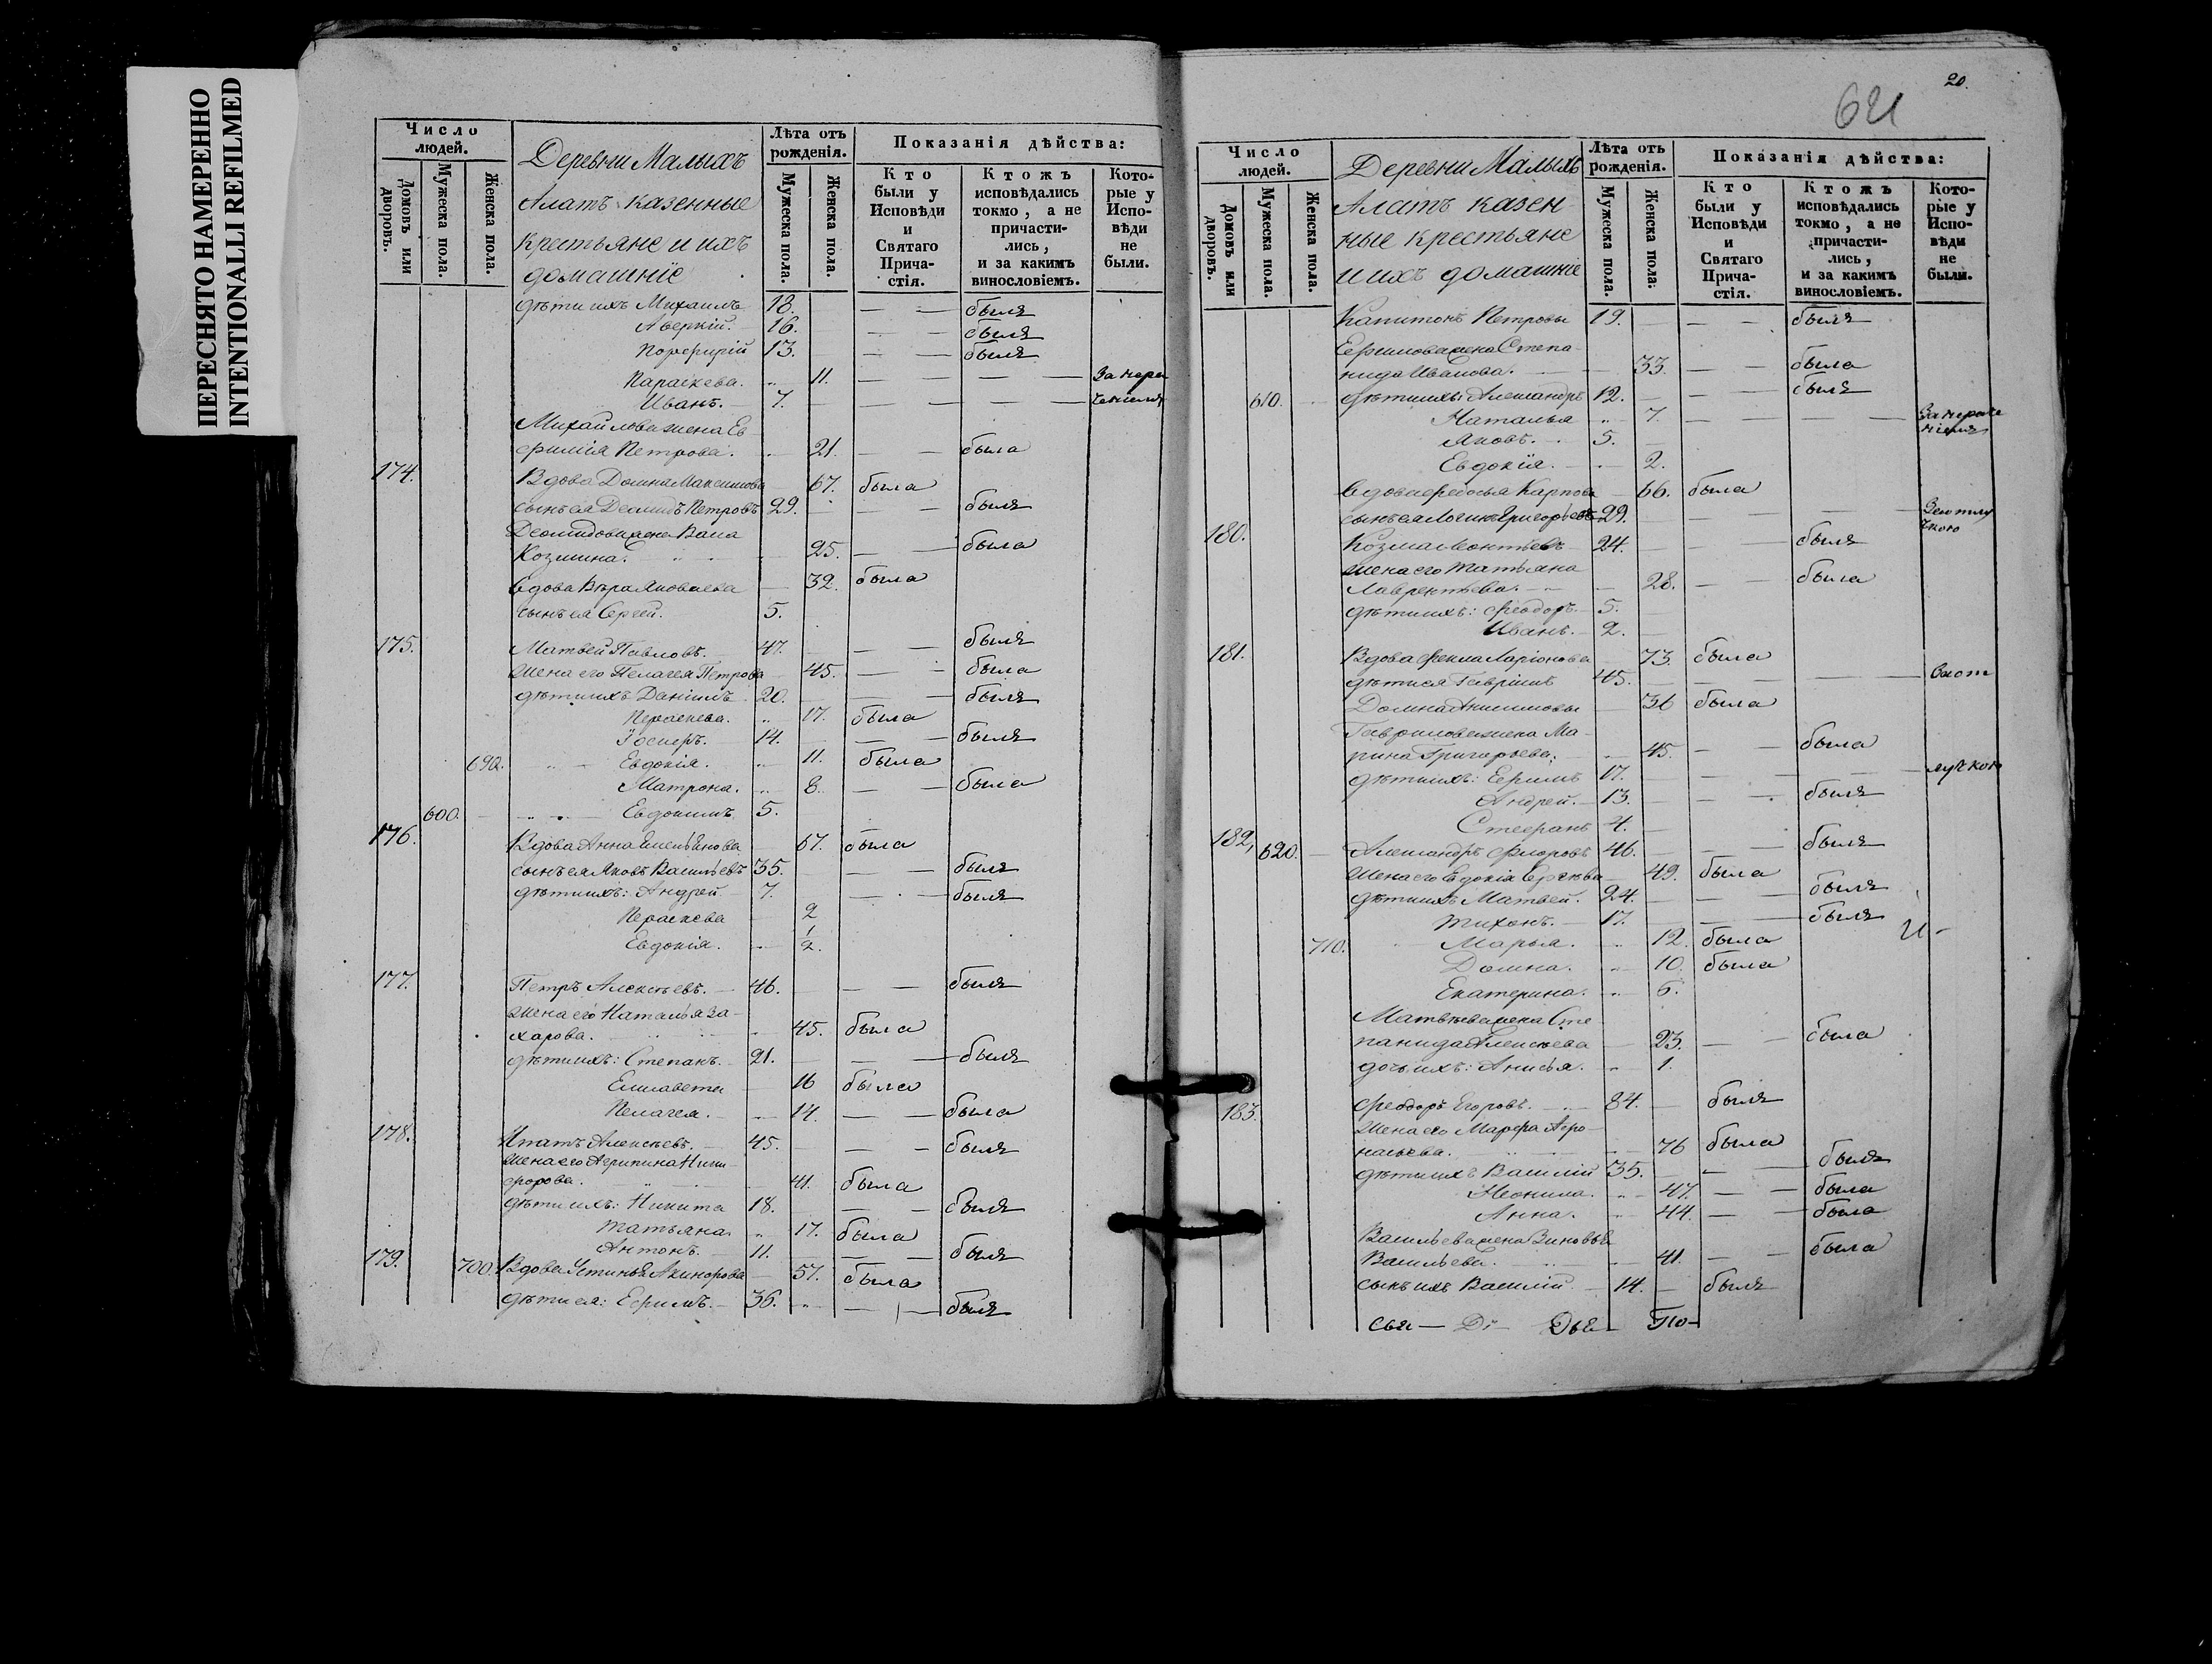 ПЕРЕСНЯТО НАМЕРЕННО
INTENTIONALLI REFILMED
Число людей.
Деревни Малыхъ
Алатъ казенные
крестьяне и ихъ
домашніе
Лѣта отъ рожденія.
Показанія дѣйства:
Домовъ или дворовъ.
Мужеска пола.
Женска пола.
Мужеска пола.
Женска пола.
Кто были у Исповѣди и Святаго Прича-стія.
Ктожъ исповѣдались токмо, а не причасти-лись, и за какимъ винословіемъ.
Кото-рые у Испо-вѣди не были.
дѣти ихъ Михаилъ 18. — — былъ
Аверкій. 16. былъ
Порфирій 13. — — былъ
Параскева. 11. — — — —
Иванъ. 7. — — — —
Михайлова жена Ев
фимія Петрова. 21. — — была
174. Вдова Домна Максимова 67. была
сынъ ея Деомидъ Петровъ 29. — — былъ
Деомидова жена Васа
Козмина. 25. — — была
вдова Вѣра Яковлева 32. была
сынъ ея Сергей. 5.
175. Матвей Павловъ. 47. — — былъ
жена его Пелагея Петрова 45. — — была
дѣти ихъ Даніилъ 20. — — былъ
Пераскева. 17. была
Іосифъ. 14. — — былъ
690. Евдокія. 11. была
Матрона. 8. — — была
600. Евдокимъ 5.
176. Вдова Анна Емельянова 67. была
сынъ ея Яковъ Васильевъ 35. — — былъ
дѣти ихъ: Андрей 7. — — былъ
Пераскева 2
Евдокія. 1/2.
177. Петръ Алексѣевъ. 46. — — былъ
Жена его Наталья За-
харова. 45. была
дѣти ихъ: Степанъ. 21. — — былъ
Елисавета 16 была
Пелагея. 14. — — была
178. Ипатъ Алексѣевъ. 45. — — былъ
Жена его Агрипина Ники-
форова. 41. была
дѣти ихъ: Никита 18. — — былъ
Татьяна 17. была
Антонъ. 11. — — былъ
179. 700. Вдова Устинья Акинфова 57. была
дѣти ея: Ефимъ. 36. — — былъ
20.
Число людей.
Деревни Малыхъ
Алатъ казен-
ные крестьяне
и ихъ домашніе
Лѣта отъ рожденія.
Показанія дѣйства:
Домовъ или дворовъ.
Мужеска пола.
Женска пола.
Мужеска пола.
Женска пола.
Кто были у Исповѣди и Святаго Прича-стія.
Ктожъ исповѣдались токмо, а не причасти-лись, и за какимъ винословіемъ.
Кото-рые у Испо-вѣди не были.
Капитонъ Петровы 19. — — былъ
Ефимова жена Степа-
нида Иванова. 33. — — была
610. дѣти ихъ: Александръ 12. — былъ
Наталья 7. — — —
Яковъ. 5.
Евдокія. 2.
вдова Федосья Карпова 66. была
сынъ ея Логинъ Григорьевъ 29. — — —
180. Козма Леонтьевъ 24. — — былъ
жена его Татьяна
Лаврентьева. 28. — — была
дѣти ихъ: Феодоръ 5.
Иванъ. 2.
181. Вдова Фекла Ларіонова 73. была
дѣти ея Гавріилъ 45. — — —
Домна Анисимовы 36 была
Гаврилова жена Ма-
рина Григорьева. 45. — — была
дѣти ихъ: Ефимъ 17. — — —
Андрей. 13. — — былъ
Стефанъ 4.
182, 620. Александръ Флоровъ 46. — — былъ
Жена его Евдокія Сергѣева 49. была
дѣти ихъ Матвей. 24. — — былъ
Тихонъ. 17. — — былъ
710. Марья. 12. была
Домна. 10. была
Екатерина. 6.
Матвѣева жена Сте-
панида Алексѣева 23. — — была
дочь ихъ: Анисья. 1.
183. Феодоръ Егоровъ. 84. былъ
Жена его Марфа Афо-
насьева. 76 была
дѣти ихъ Василій 35. — — былъ
Неонила. 47. — — была
Анна. 44. — — была
Васильева жена Зиновья
Васильева. 41. — — была
сынъ ихъ Василій. 14. былъ